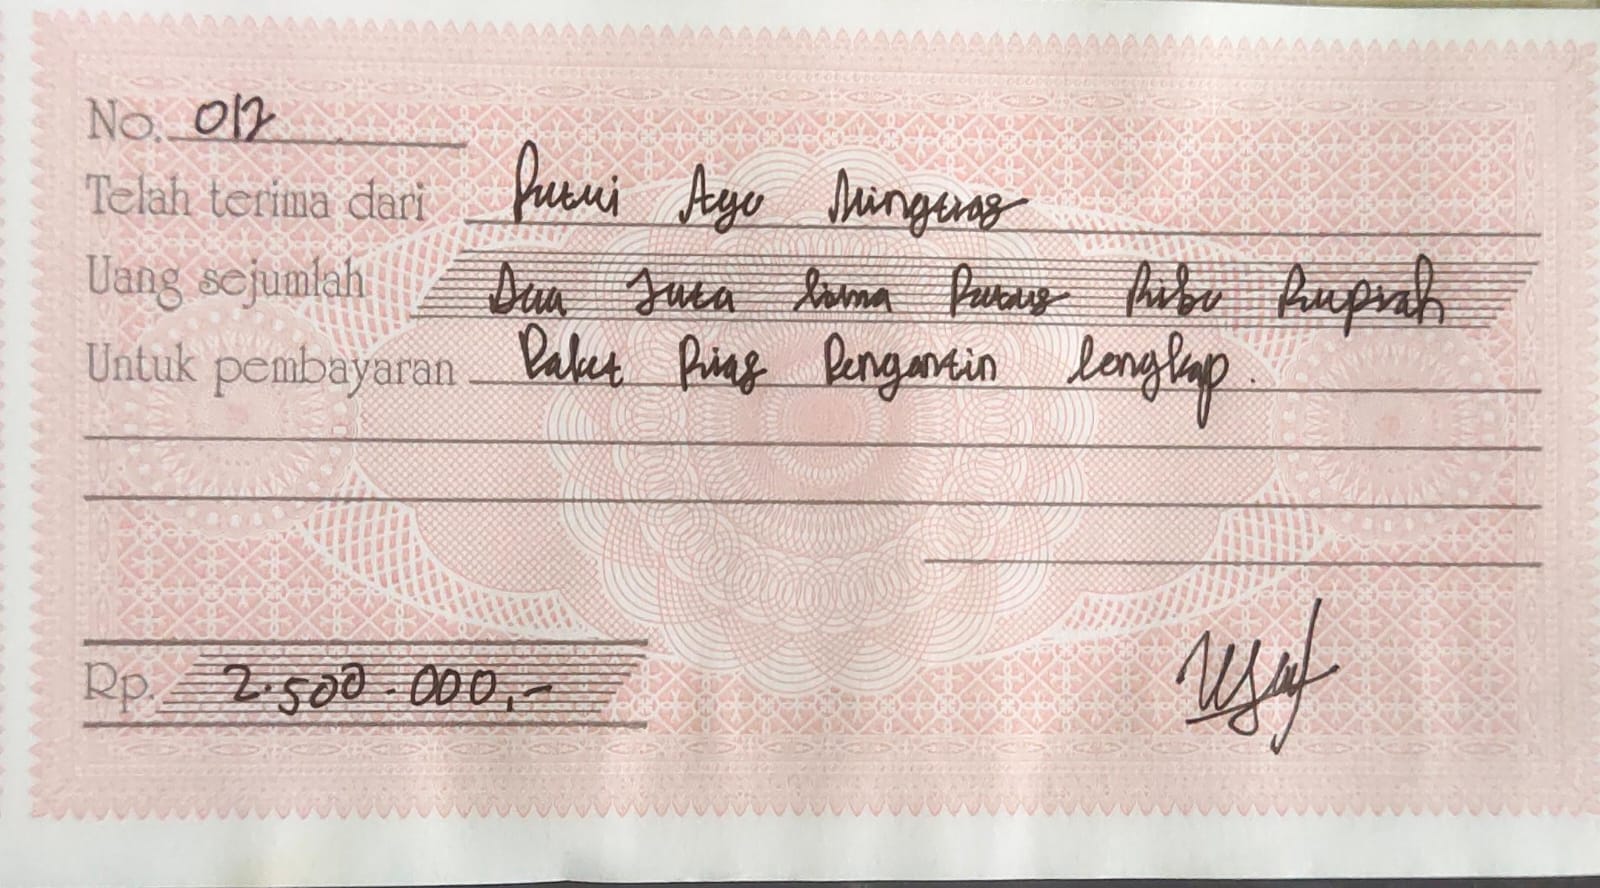 No. 012
Telah terima dari Putri Ayu Ningtias
Uang sejumlah Dua Juta Lima Ratus Ribu Rupiah
Untuk pembayaran Paket Rias Pengantin lengkap.
Rp. 2.500.000,-